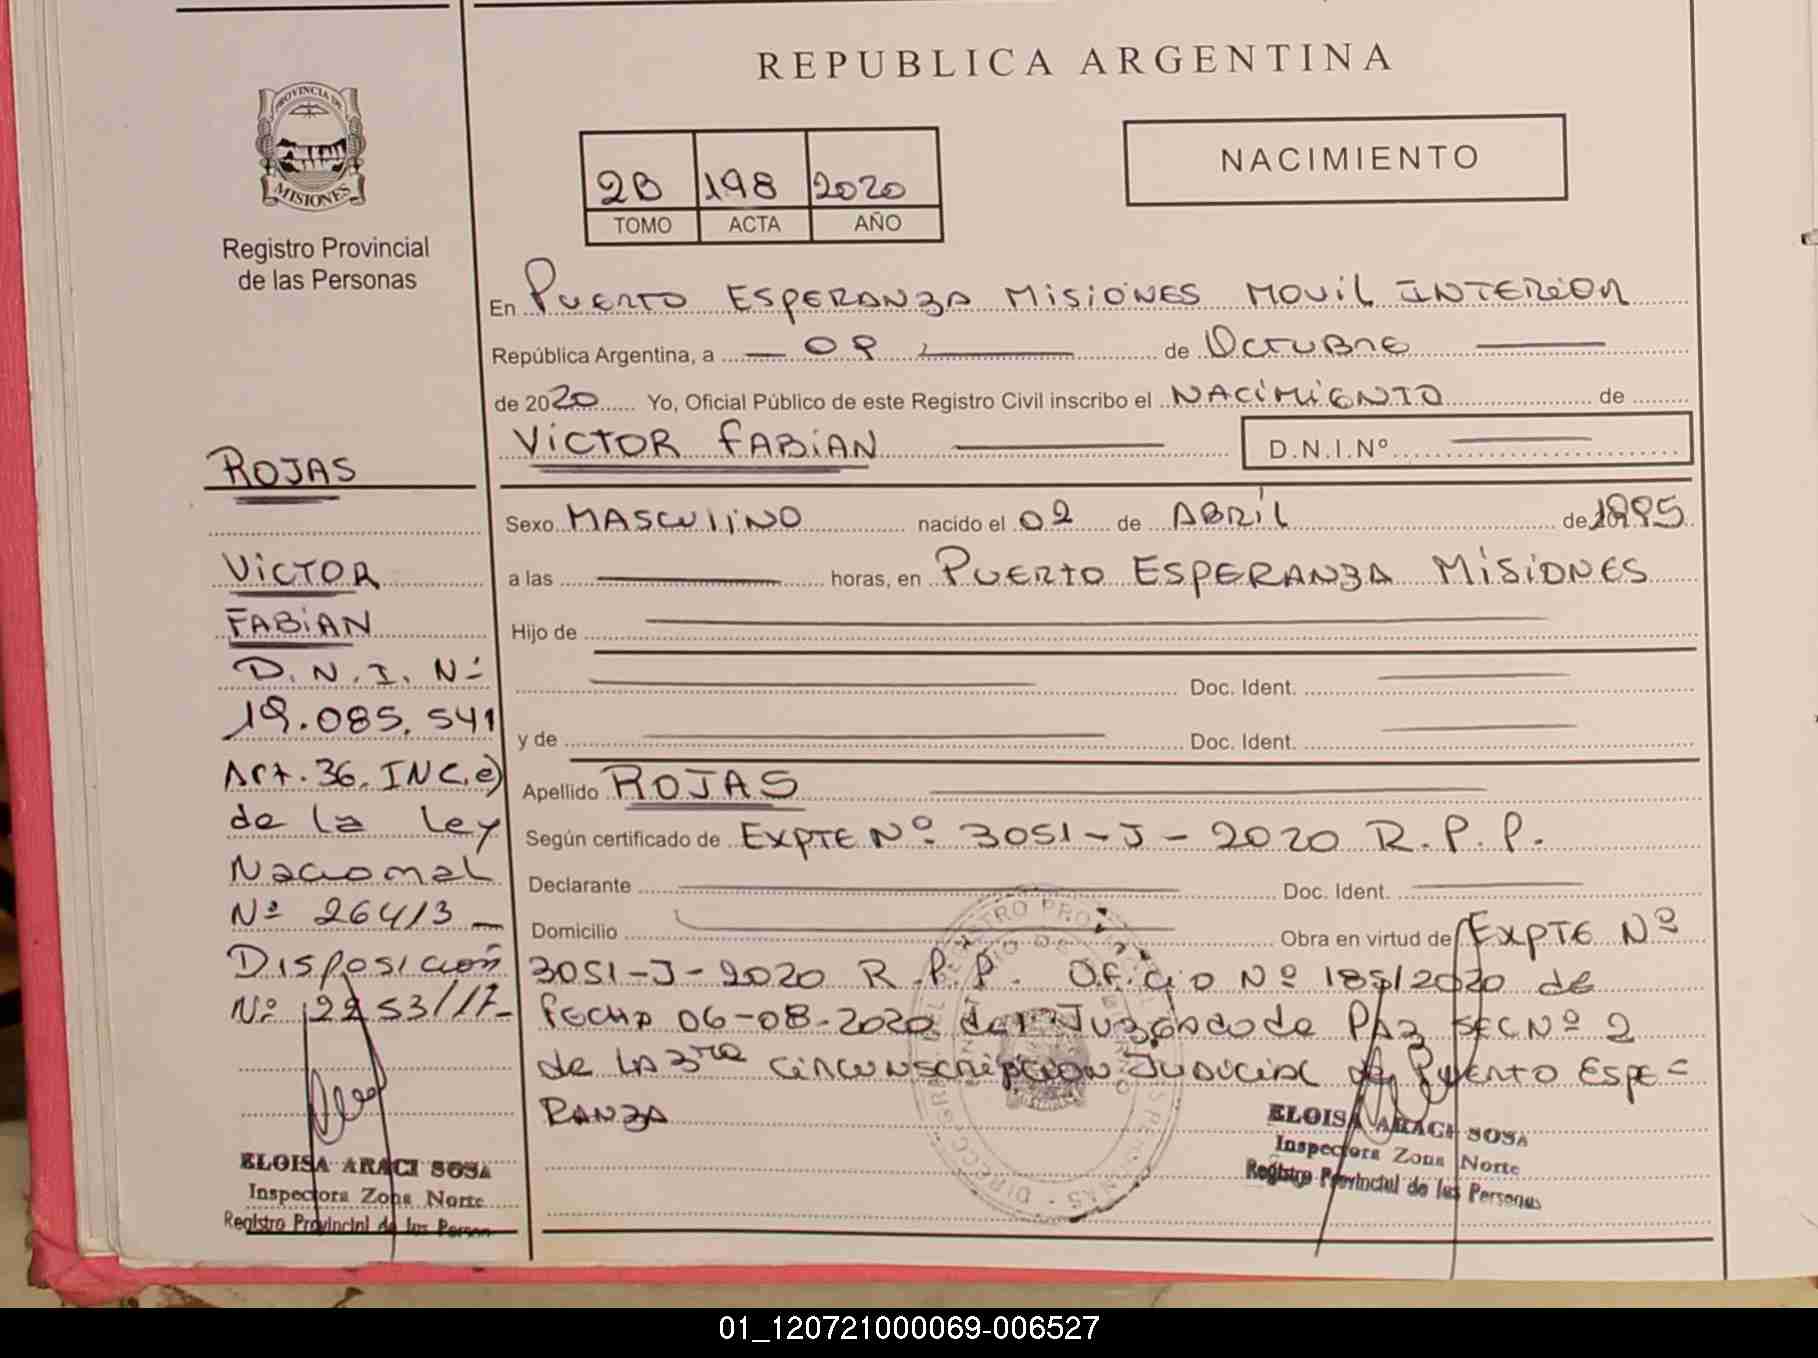 REPUBLICA ARGENTINA
PROVINCIA DE
MISIONES
Registro Provincial
de las Personas
NACIMIENTO
2B 198 2020
TOMO ACTA AÑO
En PUERTO ESPERANZA MISIONES MOVIL INTERIOR
República Argentina, a 09 de OCTUBRE
de 2020 Yo, Oficial Público de este Registro Civil inscribo el NACIMIENTO de
VICTOR FABIAN D.N.I.Nº
Sexo MASCULINO nacido el 02 de ABRIL de 1995
a las horas, en PUERTO ESPERANZA MISIONES
Hijo de
Doc. Ident.
y de Doc. Ident.
Apellido ROJAS
Según certificado de EXPTE Nº 3051-J-2020 R.P.P.
Declarante Doc. Ident.
Domicilio Obra en virtud de EXPTE Nº
3051-J-2020 R.P.P. Oficio Nº 185/2020 de
fecha 06-08-2020 del Juzgado de PAZ SEC Nº 2
de la 3ra circunscripcion Judicial de PUERTO ESPE=
RANZA
ELOISA ARACI SOSA
Inspectora Zona Norte
Registro Provincial de las Personas
ROJAS
VICTOR
FABIAN
D.N.I. Nº
19.085.541
Art. 36. INC.e)
de la Ley
Nacional
Nº 26413
Disposición
Nº 2253/17-
ELOISA ARACI SOSA
Inspectora Zona Norte
Registro Provincial de las Person
01_120721000069-006527